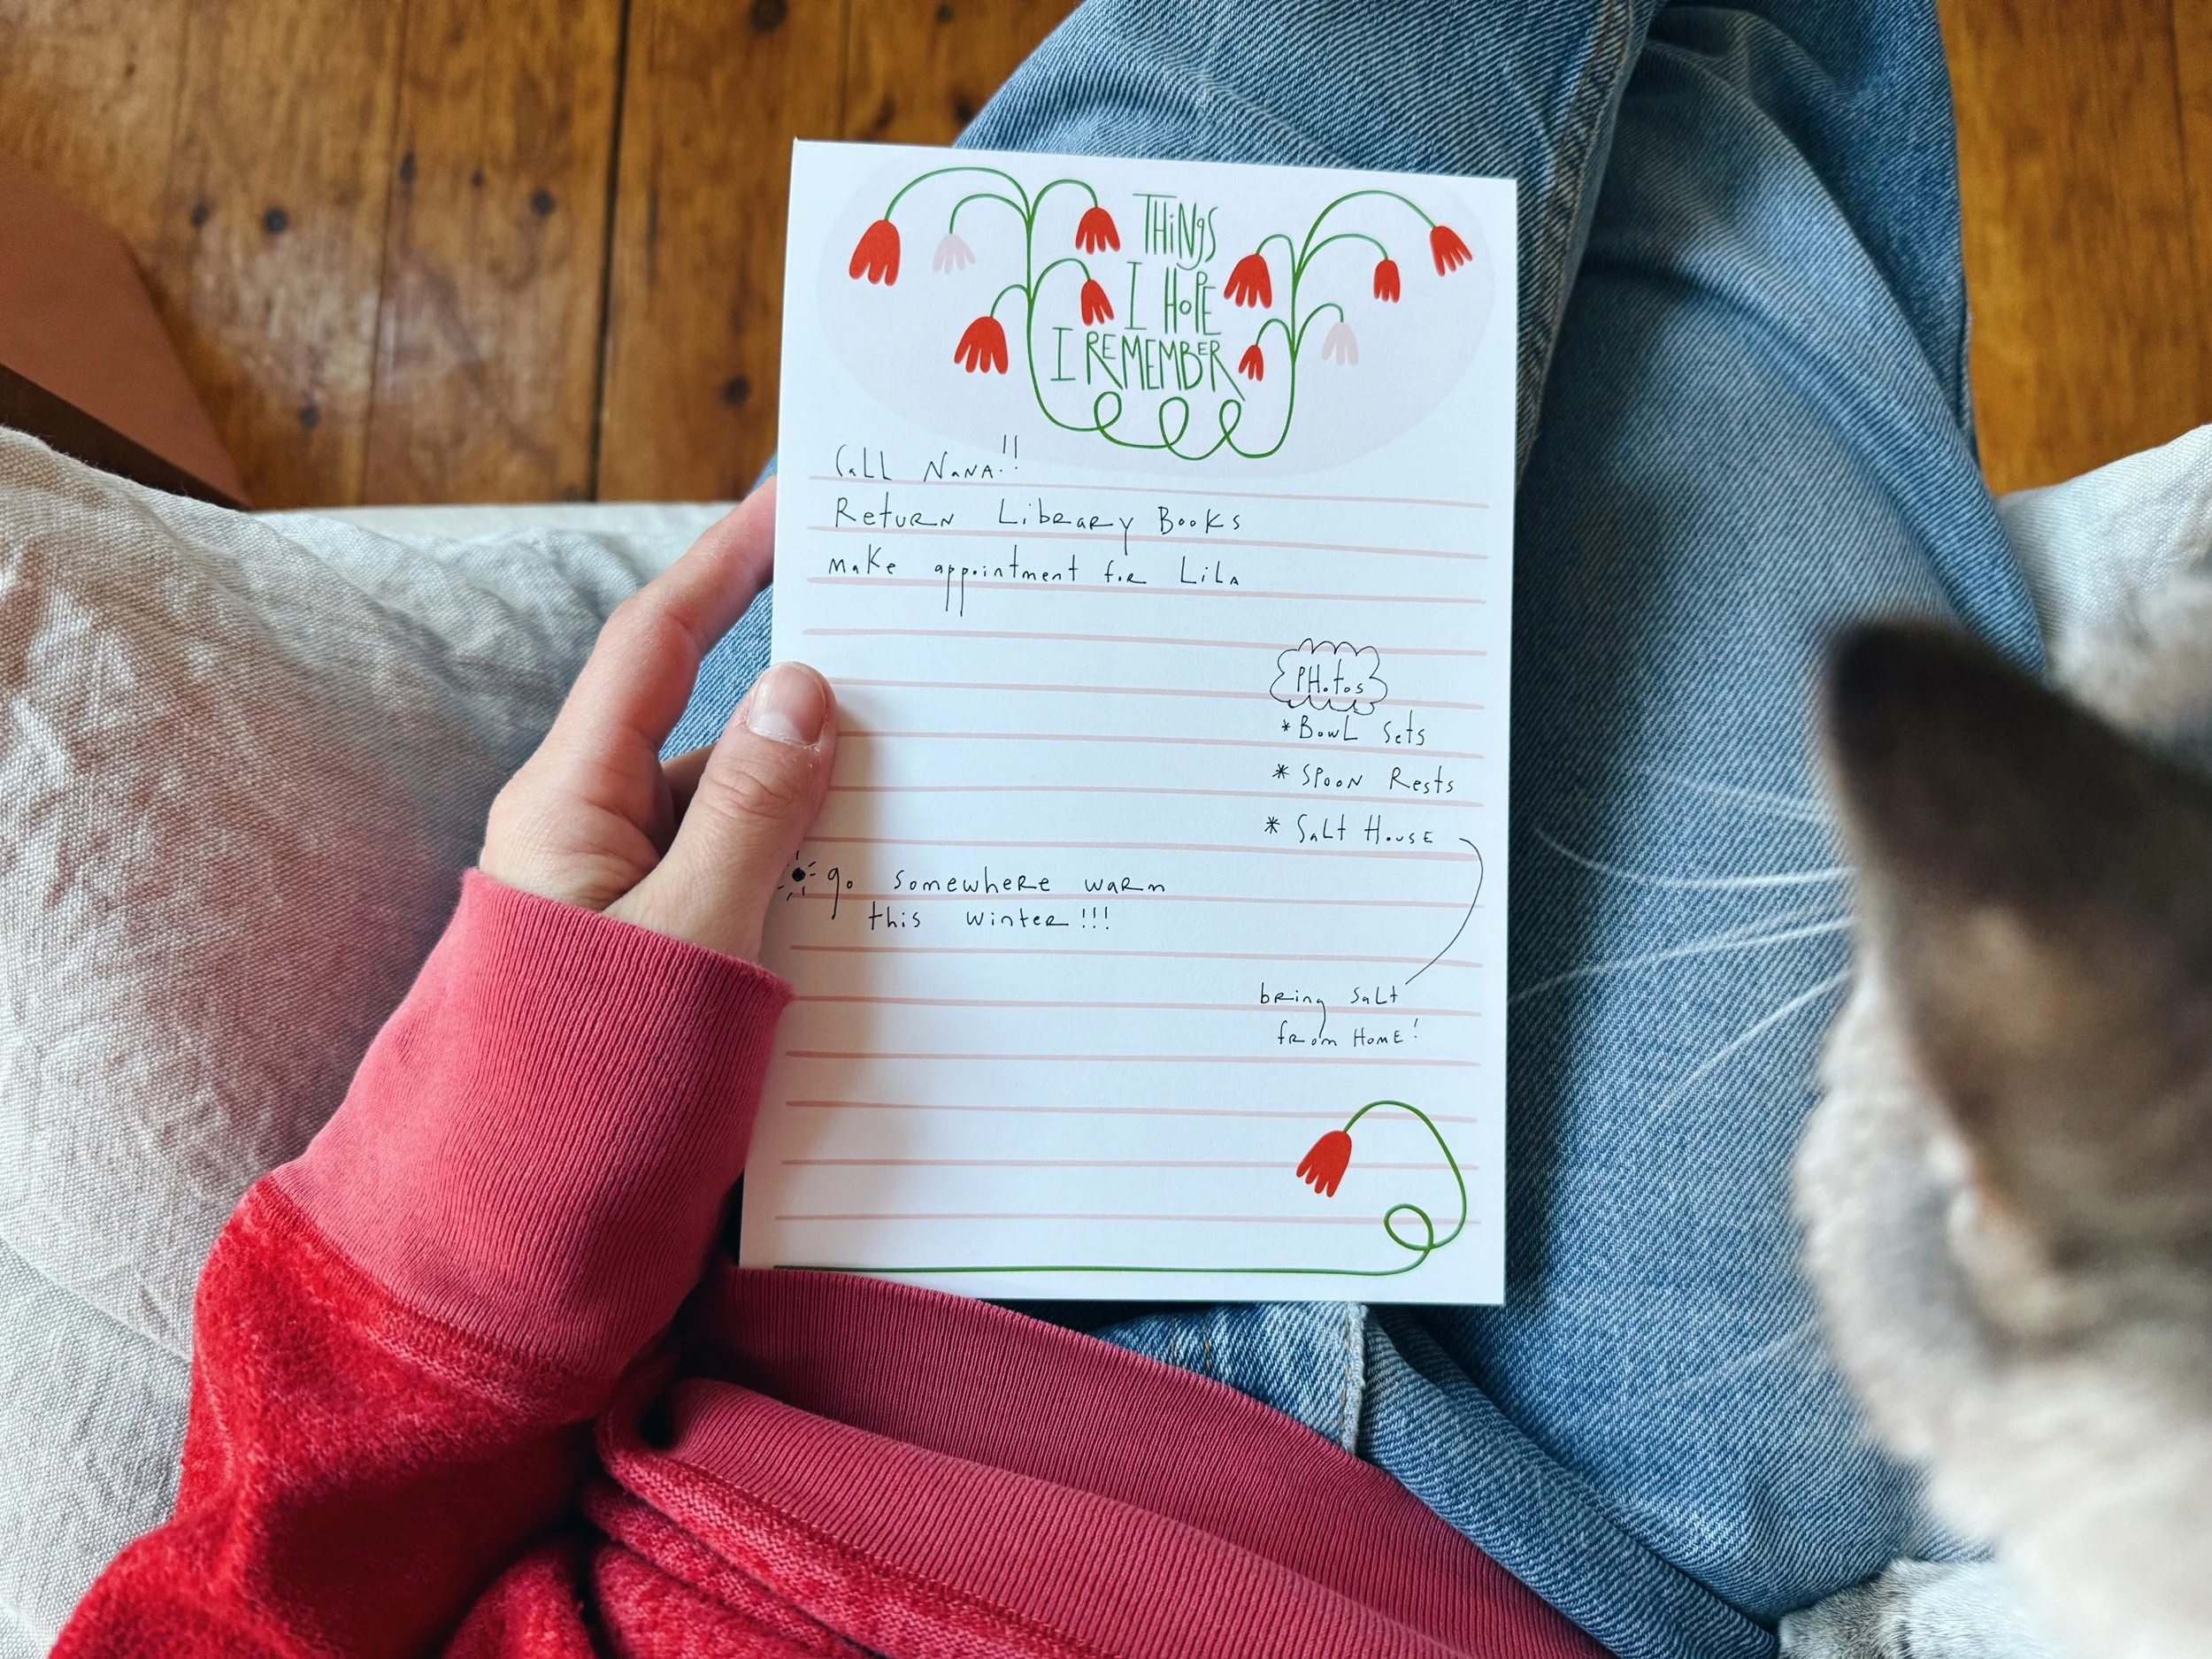 THiNgS
I HoPE
I REMEMBER
CaLL NaNA!!
RetuRN LibRaRy Books
make appointment foR LiLA
PHotos
*BowL Sets
* SPooN Rests
* SaLt HousE
go somewheRe waRm
this winteR!!!
bRing SaLt
fRom HomE!